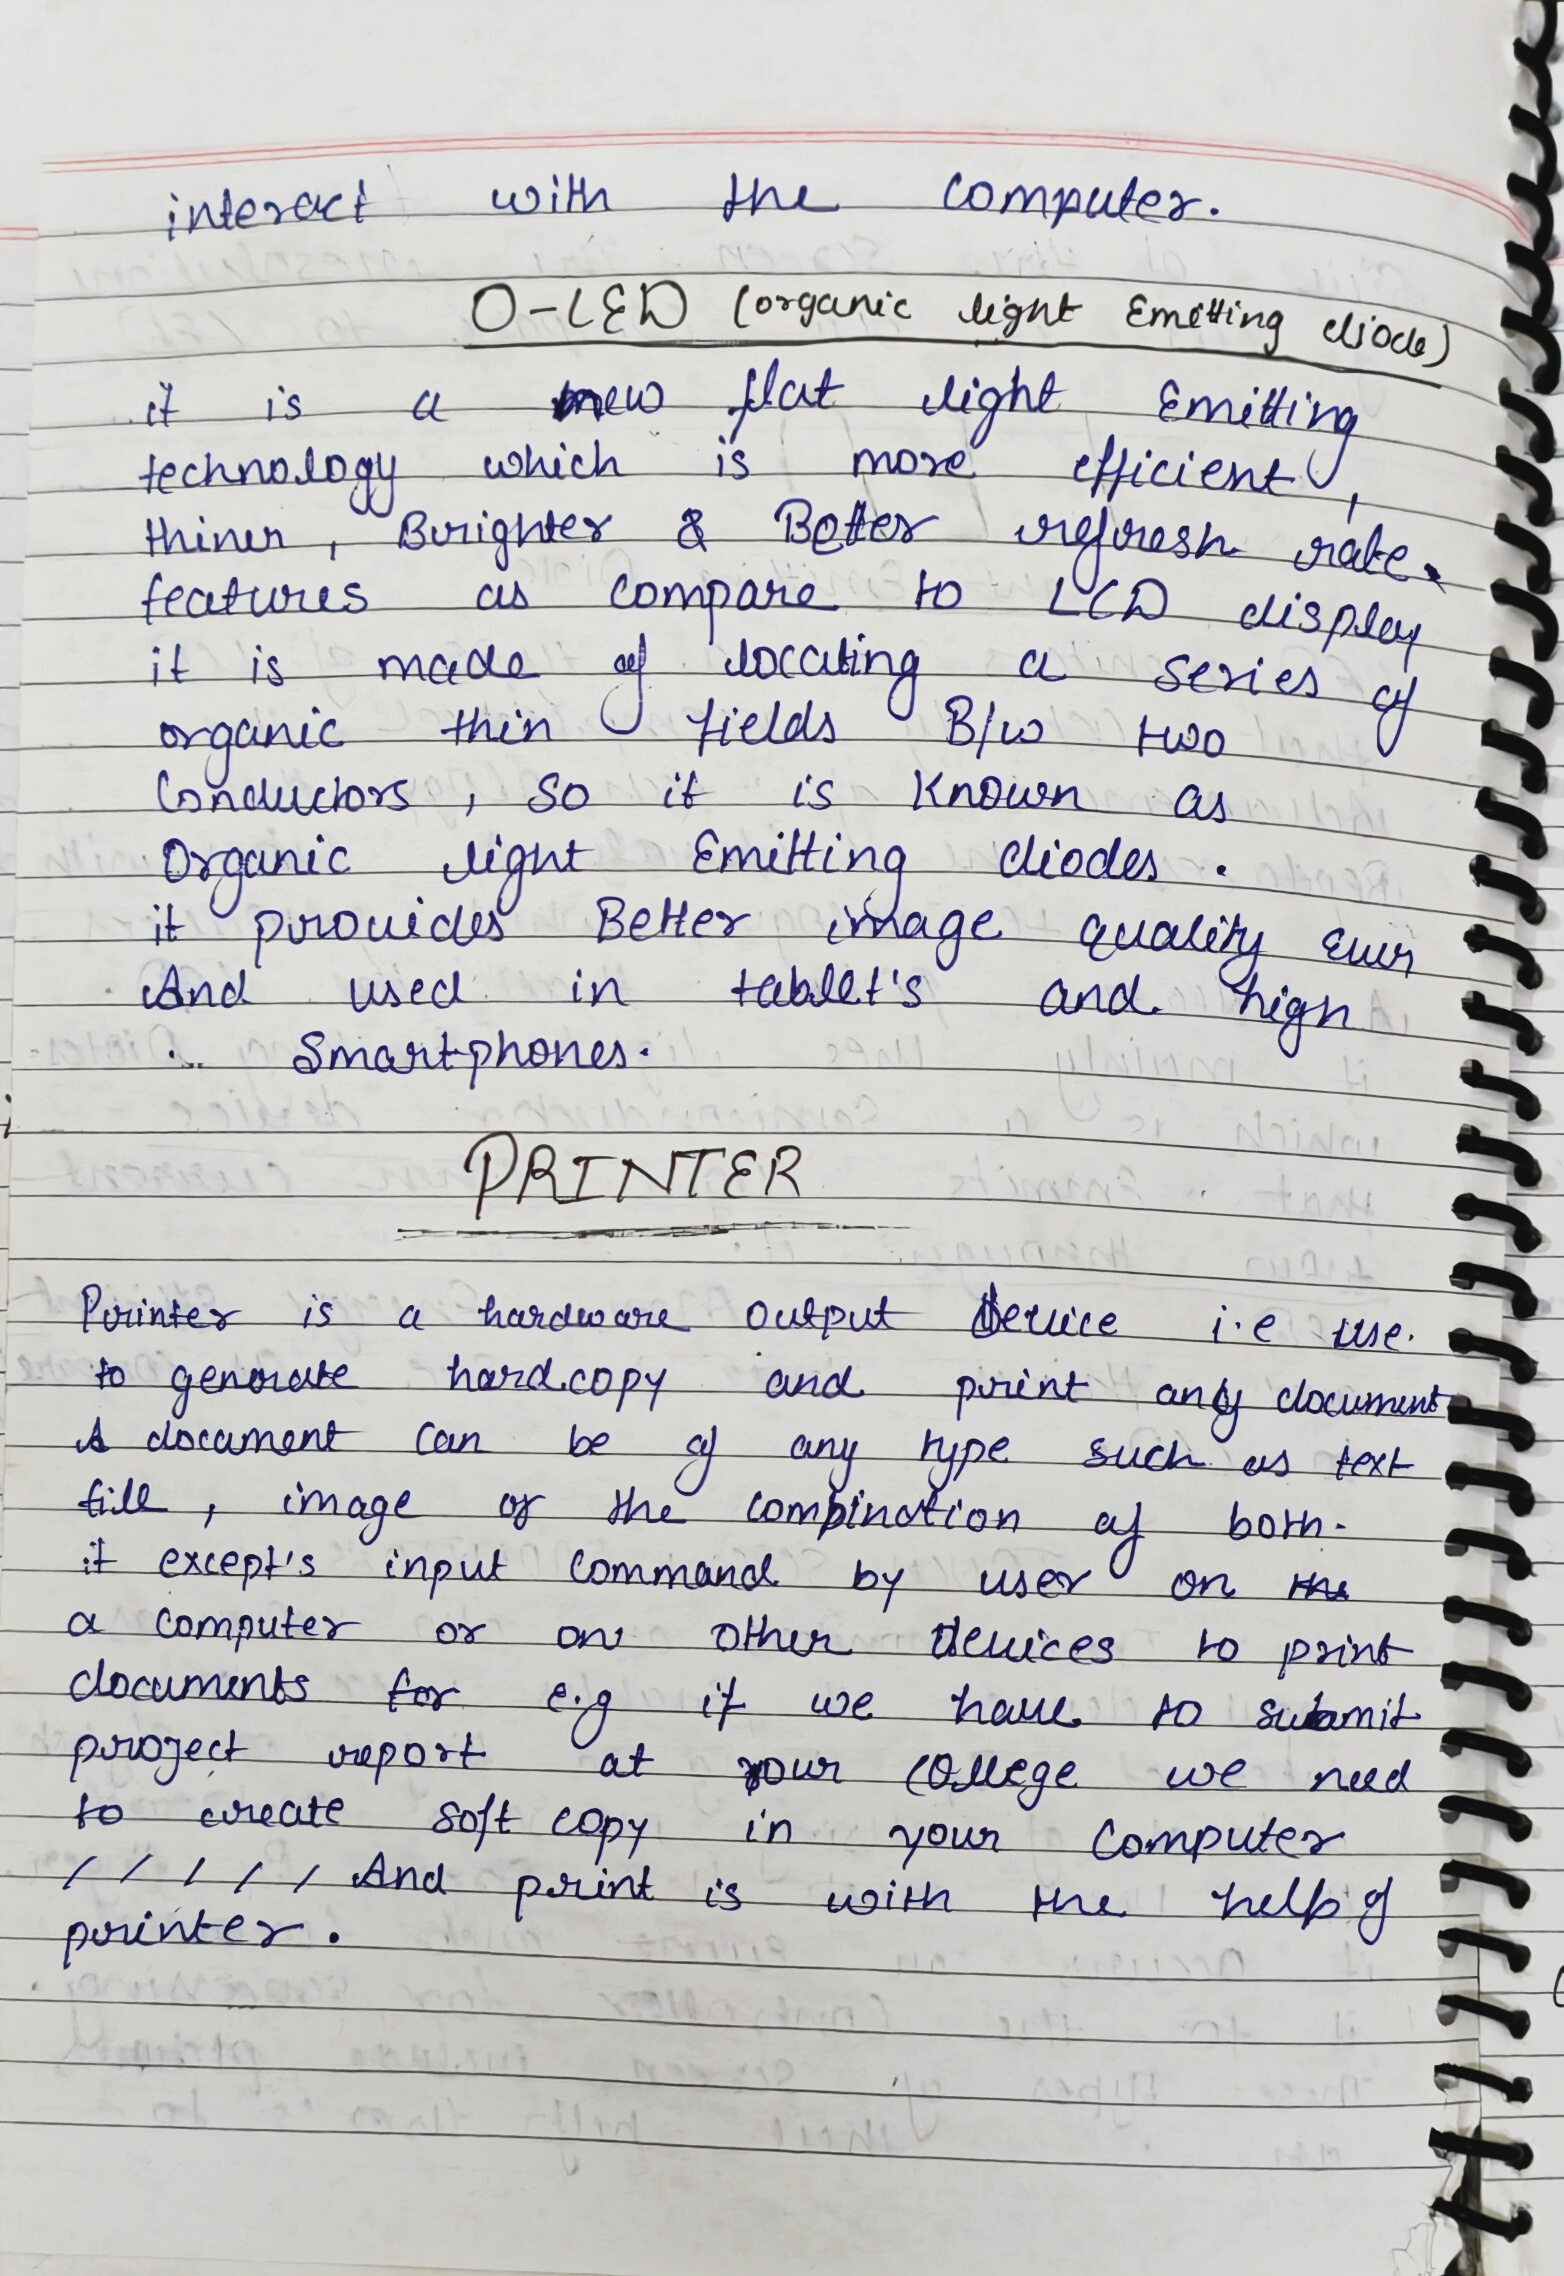 interact with the computer.
O-LED (organic light Emitting diode)
it is a new flat light Emitting
technology which is more efficient,
thiner, Brighter & Better refresh rate.
features as compare to LCD display
it is made of locating a series of
organic thin fields B/w two
Conductors, So it is Known as
Organic light Emitting diodes.
it provides Better image quality ever
And used in tablet's and high
Smartphones.
PRINTER
Printer is a hardware output Device i.e use.
to generate hardcopy and print any document
A document can be of any type such as text
file, image or the combination of both.
it except's input Command by user on the
a computer or on other devices to print
documents for e.g if we have to submit
project report at your College we need
to create soft copy in your Computer
/ / / / / And print is with the help of
printer.